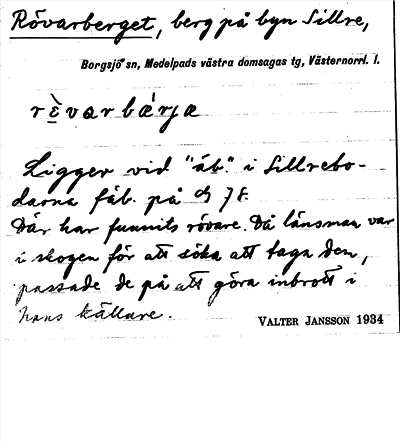 Rövarberget, berg på byn Sillre,
Borgsjö sn, Medelpads västra domsagas tg, Västernorrl. l.
rèvarbærjæ
Ligger vid "äb." i Sillrebo-
darna fäb. på 78.
Där har funnits rövare. Då länsman var
i skogen för att söka att taga den,
passade de på att göra inbrott i
hans källare.
VALTER JANSSON 1934